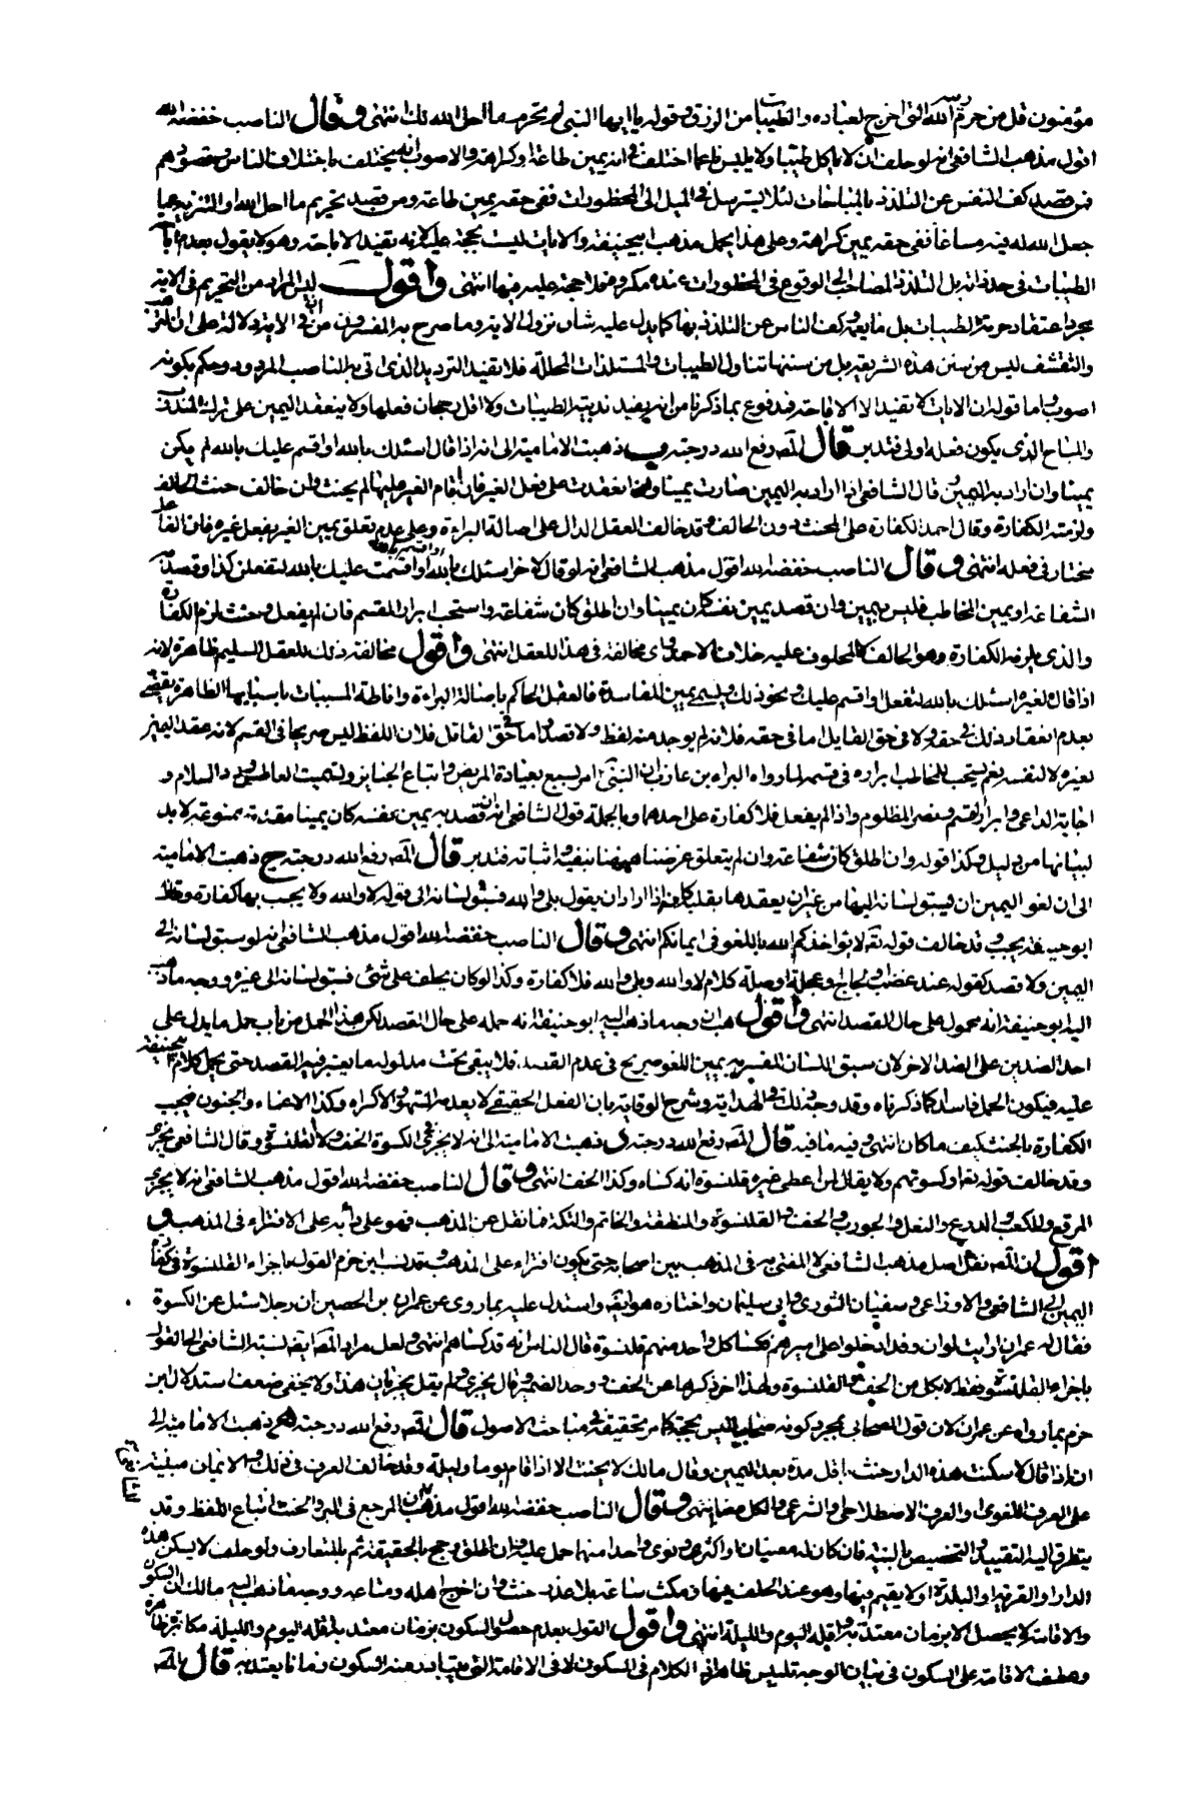 مؤمنون قل من حرم زينة الله التي اخرج لعباده والطيبات من الرزق وقوله يا ايها النبي لم تحرم ما احل الله لك انتهى وقال الناصب خفضه الله
اقول مذهب الشافعي انه لو حلف ان لا ياكل طيبا ولا يلبس ناعما اختلف في انه يمين طاعة او كراهة والاصوب انه يختلف باختلاف الناس وقصودهم
فمن قصد كف النفس عن التلذذ بالمباحات لئلا يسترسل في الميل الى المحظورات ففي حقه يمين طاعة ومن قصد تحريم ما احل الله او التنزه عما
جعل الله له فيه مساغا ففي حقه يمين كراهة وعلى هذا يحمل مذهب ابيحنيفة والايات ليست بحجة عليه لانه تفيد الاباحة وهو لا يقول بعدم اباحة
الطيبات في حد ذاته بل التلذذ المصاحب الى الوقوع في المحظورات عنده مكروه فلا حجة عليه فيها انتهى واقول ليس المراد من التحريم في الاية
مجرد اعتقاد حرمة الطيبات بل ما يعمه وكف الناس عن التلذذ بها كما يدل عليه شان نزول الاية وما صرح به المفسرون من ان في الاية دلالة على ان الترهب
والتقشف ليس من سنن هذه الشريعة بل من سننها تناول الطيبات والمستلذات المحللة فلا تفيد الترديد الذي اتى به الناصب المردود وحكم بكونه
اصوب واما قوله ان الايات لا تفيد الا الاباحة فمدفوع بما ذكرنا من انه يفيد ندبية الطيبات ولا اقل رجحان فعلها ولا ينعقد اليمين على ترك المندوب
والمباح الذي يكون فعله اولى فتدبر قال المص رفع الله درجته ب ذهبت الامامية الى انه اذا قال اسئلك بالله او اقسم عليك بالله لم يكن
يمينا وان اراد به اليمين وقال الشافعي اذا اراد به اليمين صارت يمينا وانعقدت على فعل الغير فان اقام الغير عليها لم يحنث وان خالف حنث الحالف
ولزمته الكفارة وقال احمد الكفارة على المحنث دون الحالف وقد خالف العقل الدال على اصالة البراءة وعلى عدم تعلق يمين الغير بفعل غيره فان الفاعل
مختار في فعله انتهى وقال الناصب خفضه الله اقول مذهب الشافعي انه لو قال لاخر اسئلك بالله او اقسمت عليك بالله لتفعلن كذا وقصد به
الشفاعة او يمين المخاطب فليس بيمين وان قصد يمين نفسه كان يمينا وان اطلق كان شفاعة واستحب ابرار المقسم فان لم يفعل وحنث لزم الكفارة
والذي يلزمه الكفارة وهو الحالف لا المحلوف عليه خلافا لاحمد واى مخالفة في هذا للعقل انتهى واقول مخالفة ذلك للعقل السليم ظاهرة لانه
اذا قال لغيره اسئلك بالله لتفعل او اقسم عليك ونحو ذلك ويسمى يمين المناشدة فالعقل الحاكم باصالة البراءة واناطة المسببات باسبابها الظاهرة يقتضي
بعدم انعقاد ذلك في حقه ولا في حق القايل اما في حقه فلانه لم يوجد منه لفظ ولا قصد واما في حق القائل فلان اللفظ ليس صريحا في القسم لانه عقد اليمين
لغيره لا لنفسه نعم يستحب للمخاطب ابراره في قسمه لما رواه البراء بن عازب ان النبي امر بسبع بعيادة المريض واتباع الجنايز وتسميت العاطس ورد السلام و
اجابة الداعي وابرار القسم ونصر المظلوم واذا لم يفعل فلا كفارة على احدهما وبالجملة قول الشافعي انه ان قصد به يمين نفسه كان يمينا مقدمة ممنوعة لا بد
لبيانها من دليل وكذا قوله وان اطلق كان شفاعة وان لم يتعلق غرضنا ههنا بنفيه واثباته فتدبر قال المص رفع الله درجته ج ذهبت الامامية
الى ان لغو اليمين ان يسبق لسانه اليها من غير ان يعقدها بقلبه كانه اذا اراد ان يقول بلى والله فسبق لسانه الى قوله لا والله ولا يجب بها كفارة وقال
ابو حنيفة يجب وقد خالف قوله تعالى لا يؤاخذكم الله باللغو في ايمانكم انتهى وقال الناصب خفضه الله اقول مذهب الشافعي انه لو سبق لسانه الى
اليمين ولا قصد كقوله عند غضب او لجاج وعجلة او صلة كلام لا والله وبلى والله فلا كفارة وكذا لو كان يحلف على شئ فسبق لسانه الى غيره ووجه ما ذهب
اليه ابو حنيفة انه محمول على حال القصد انتهى واقول هب ان وجه ما ذهب اليه ابو حنيفة انه حمله على حال القصد لكن هذا الحمل من باب حمل ما يدل على
احد الضدين على الضد الاخر لان سبق اللسان المفسر به يمين اللغو صريح في عدم القصد فلا يبقى تحت مدلوله ما يعتبر فيه القصد حتى يحمل كلام ابيحنيفة
عليه فيكون الحمل فاسدا كما ذكرناه وقد وجه ذلك في الهداية وشرح الوقاية بان الفعل الحقيقي لا يعدمه السهو والاكراه وكذا الاغماء والجنون فيجب
الكفارة بالحنث كيف ما كان انتهى وفيه ما فيه قال المص رفع الله درجته د ذهبت الامامية الى انه لا يجزي في الكسوة الخف ولا القلنسوة وقال الشافعي يجزي
وقد خالف قوله تعالى او كسوتهم ولا يقال لمن اعطى غيره قلنسوة انه كساه وكذا الخف انتهى وقال الناصب خفضه الله اقول مذهب الشافعي انه لا يجزي
المرقع والمكعب والدرع والنعل والجورب والخف والقلنسوة والمنطقة والخاتم والتكة فما نقل عن المذهب فهو على دأبه على الافتراء في المذهب و
اقول ان المص نقل اصل مذهب الشافعي لا المفتى به في المذهب بين اصحابه حتى يكون افتراء على المذهب وقد نسب ابن حزم القول باجزاء القلنسوة في كفارة
اليمين الى الشافعي والاوزاعي وسفيان الثوري وابي سليمان واختاره هو ايضا واستدل عليه بما روى عن عمران بن الحصين ان رجلا سئل عن الكسوة
فقال له عمران ارايت لو ان وفدا دخلوا على اميرهم فكسا كل واحد منهم قلنسوة قال الناس انه قد كساهم انتهى ولعل مراد المص ايضا نسبة الشافعي الى القول
باجزاء القلنسوة فقط لا بكل من الخف والقلنسوة ولهذا اخر ذكرها عن الخف ووحد الضمير وقال يجزي ولم يقل يجزيان هذا ولا يخفى ضعف استدلال ابن
حزم بما رواه عن عمران لان قول الصحابي بمجرد كونه صحابيا ليس بحجة كما مر تحقيقه في مباحث الاصول قال المص رفع الله درجته ه ذهبت الامامية الى
انه اذا قال لا سكنت هذه الدار حنث باقل مدة بعد اليمين وقال مالك لا يحنث الا اذا اقام يوما وليلة وقد خالف العرف في ذلك والايمان مبنية
على العرف اللغوي او العرف الاصطلاحي والشرعي والكل معنا انتهى وقال الناصب خفضه الله اقول مذهبه ان المرجع في البر والحنث اتباع اللفظ وقد
يتطرق اليه التقييد والتخصيص بالنية فان كان له معنيان او اكثر ونوى واحدا منها حمل عليه وان اطلق رجح بالحقيقة ثم بالمتعارف ولو حلف لا يسكن هذه
الدار او القرية او البلدة او لا يقيم فيها وهو عند الحلف فيها ومكث ساعة بلا عذر حنث وان اخرج اهله ومتاعه ووجه ما ذهب اليه مالك ان السكون
والاقامة لا يحصل الا بزمان معتد به واقله اليوم والليلة انتهى واقول القول بعدم حصول السكون بزمان معتد به اقله اليوم والليلة مكابرة ظاهرة
وعطف الاقامة على السكون في بيان الوجه تلبيس ظاهر لان الكلام في السكون لا في الاقامة التي يتبادر عنه السكون زمانا يعتد به قال المص